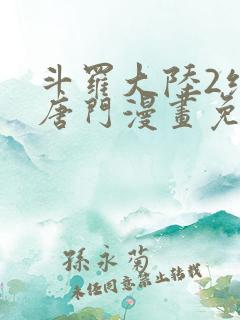 斗羅大陸2
唐門漫畫免
孫永菊
未經同意禁止转载